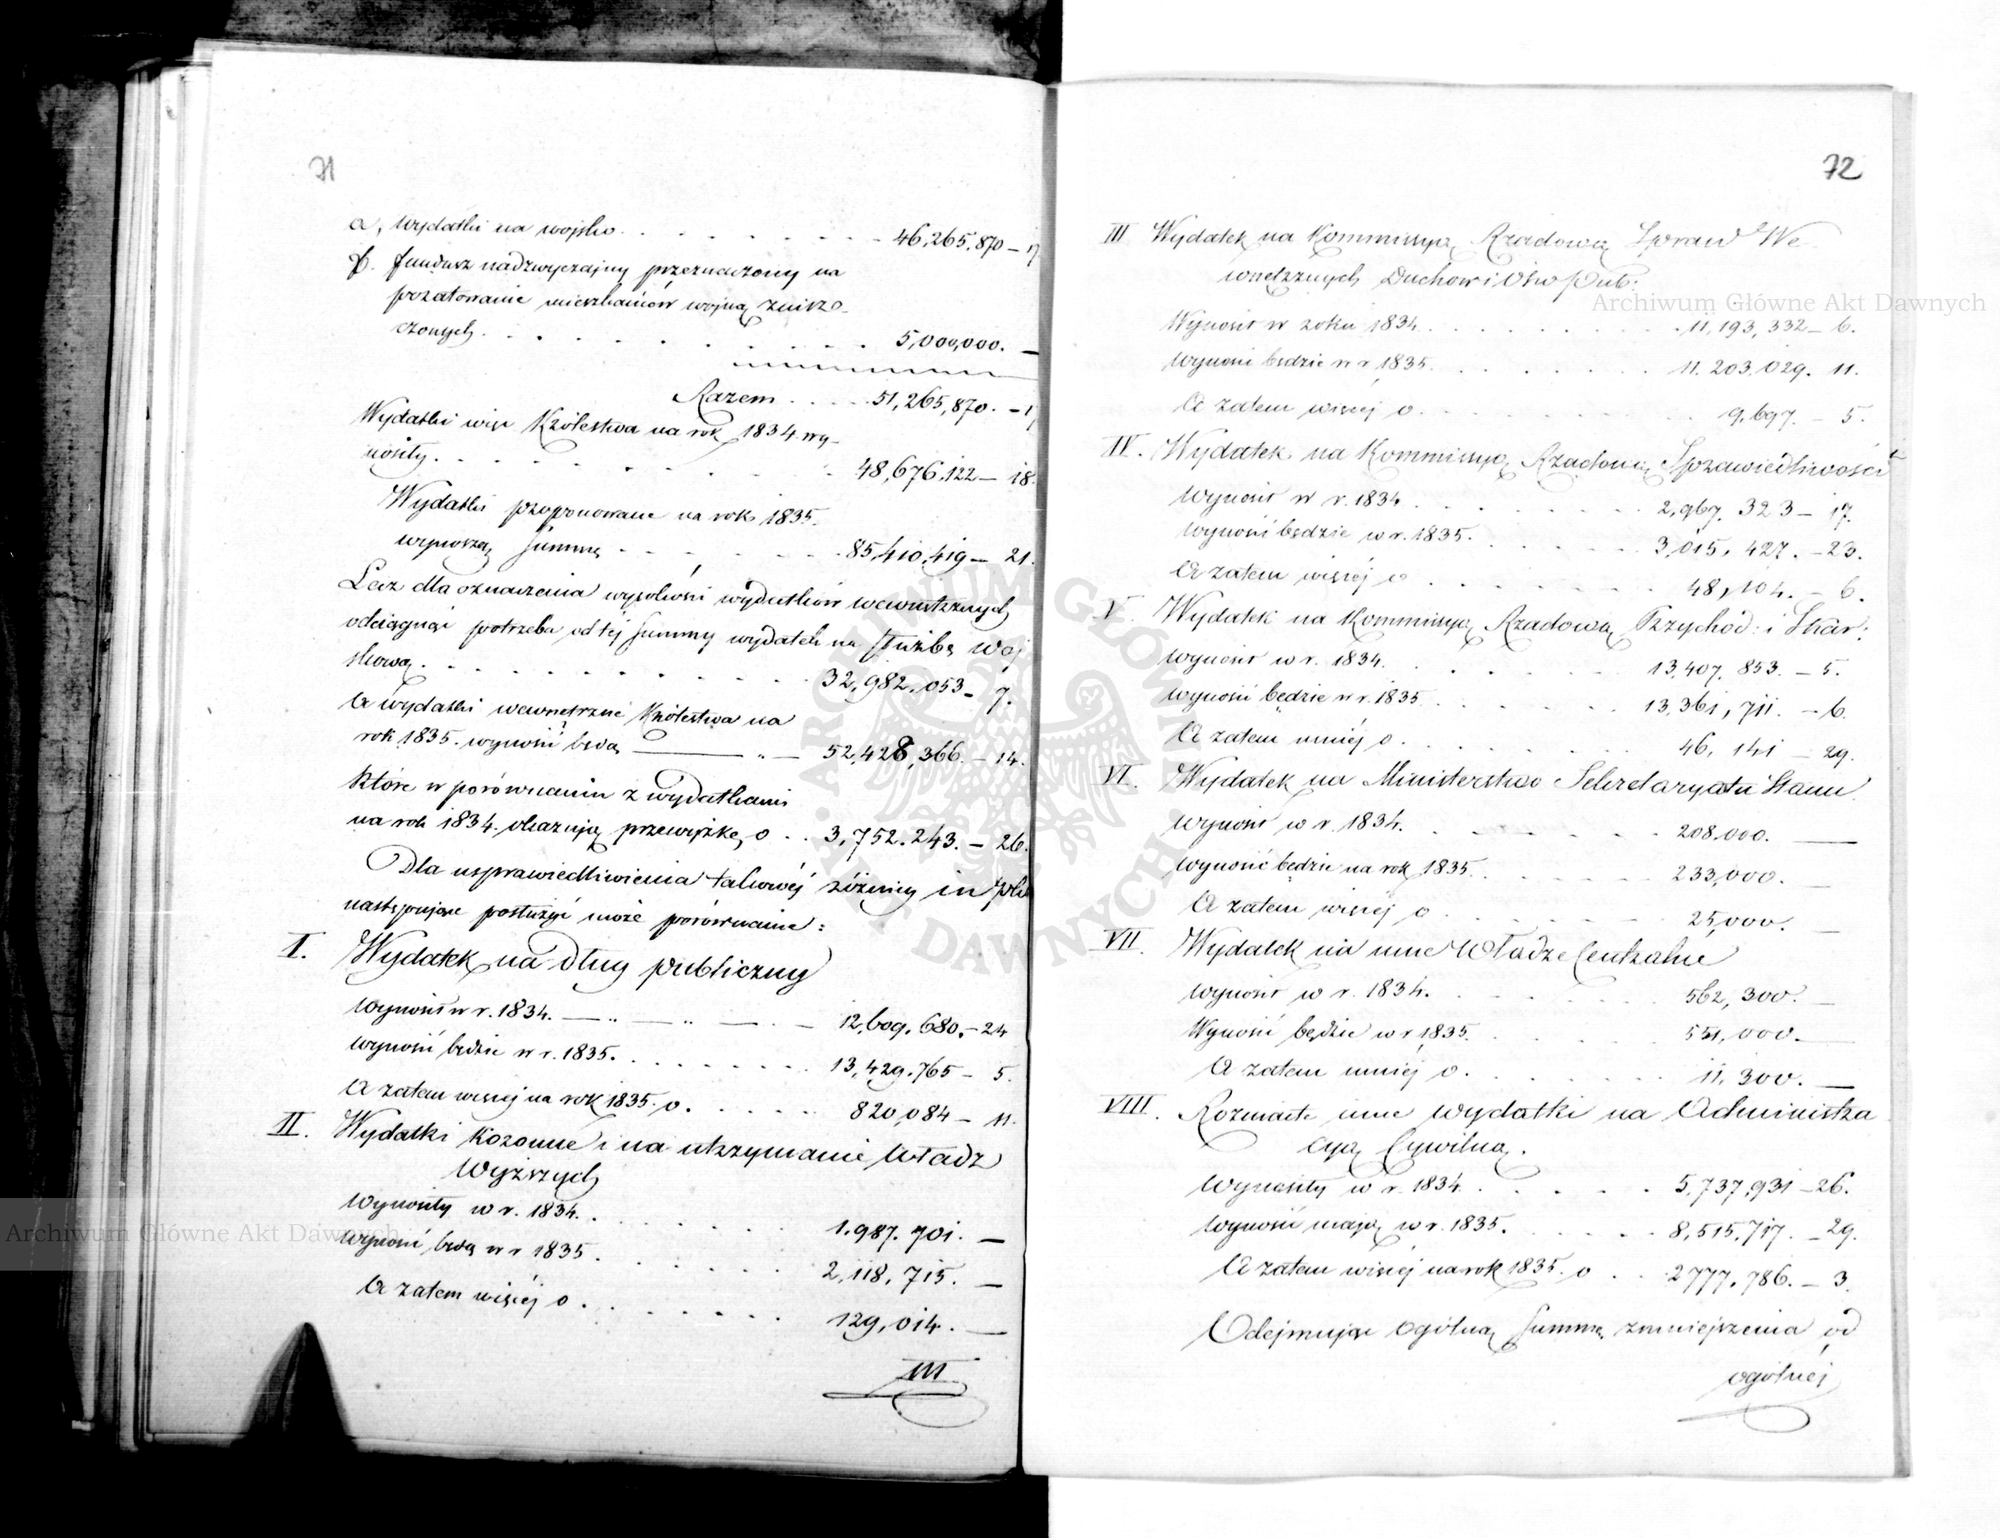 71
a, Wydatki na wojsko . . . . . . . . 46,265,870 – 17
b. fundusz nadzwyczajny przeznaczony na
poratowanie mieszkańców wojną znisz-
czonych . . . . . . . . 5,000,000. –
Razem . . . . 51,265,870. – 17
Wydatki więc Królestwa na rok 1834 wy-
nosiły . . . . . . . . 48,676,122 – 18.
Wydatki proponowane na rok 1835.
wynoszą Summę . . . . . . 85,410,419 – 21.
Lecz dla oznaczenia wysokości wydatków wewnętrznych
odciągnąć potrzeba od tej Summy wydatek na służbę woj
skową . . . . . . . . 32,982,053 – 7.
A wydatki wewnętrzne Królestwa na
rok 1835. wynosić będą —— „ — 52,428,366. – 14.
Które w porównaniu z wydatkami
na rok 1834. okazują przewyżkę o . . 3,752.243. – 26.
Dla usprawiedliwienia takowej różnicy in plus
następujące posłużyć może porównanie:
I. Wydatek na dług publiczny
Wynosił w r. 1834. — „ — „ — . — 12,609.680. – 24
wynosić będzie w r. 1835. . . . . . . 13,429.765 – 5.
A zatem więcej na rok 1835. o. . . . . 820,084 – 11.
II. Wydatki Koronne i na utrzymanie Władz
Wyższych
Wynosiły w r. 1834. . . . . . . 1.987.701. —
wynosić będą w r 1835 . . . . . . 2,118,715. —
A zatem więcej o . . . . . . 129,014. —
III
72
III Wydatek na Kommissyą Rządową Spraw We-
wnętrznych Duchow: i Ośw: Pub:
Wynosił w roku 1834 . . . . . . . 11,193,332 – 6.
Wynosić będzie w r 1835. . . . . . . 11.203.029. 11.
A zatem więcej o . . . . . . . 9,697. – 5.
IV. Wydatek na Kommissyą Rządową Sprawiedliwości
Wynosił w r. 1834 . . . . . . . 2,967,323 – 17.
Wynosić będzie w r. 1835. . . . . . 3,015,427. – 23.
A zatem więcej o . . . . . . 48,104. – 6.
V. Wydatek na Kommissyą Rządową Przychod: i Skar:
Wynosił w r. 1834. . . . . . . 13,407,853. – 5.
Wynosić będzie w r. 1835 . . . . . . 13,361,711. – 6.
A zatem mniej o . . . . . . . 46,141 – 29.
VI. Wydatek na Ministerstwo Sekretaryatu Stanu
Wynosił w r. 1834. . . . . . . 208,000. —
Wynosić będzie na rok 1835. . . . . . 233,000. —
A zatem więcej o . . . . . . 25,000. —
VII. Wydatek na inne Władze Centralne
Wynosił w r. 1834. . . . . . . 562,300. —
Wynosić będzie w r 1835. . . . . . 551,000. —
A zatem mniej o . . . . . . 11,300. —
VIII. Rozmaite inne wydatki na Administra
cyą Cywilną.
Wynosiły w r. 1834 . . . . . 5,737,931 – 26.
Wynosić mają w r. 1835. . . . . 8,515,717. – 29.
A zatem więcej na rok 1835. o . . 2777,786. – 3.
Odejmując ogólną Summę zmniejszenia od
ogólnej
Archiwum Główne Akt Dawnych
Archiwum Główne Akt Dawnych
ARCHIWUM GŁÓWNE AKT DAWNYCH